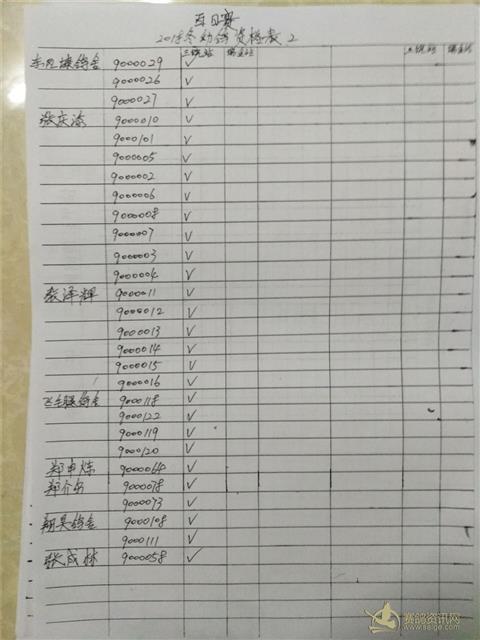 百日赛
2018冬幼鸽资格表 2
三绕站
三绕站
9000029 ✓
9000026 ✓
9000027 ✓
张庆添 9000010 ✓
9000101 ✓
9000005 ✓
9000002 ✓
9000006 ✓
9000008 ✓
900007 ✓
9000003 ✓
9000004 ✓
张泽辉 9000011 ✓
9000012 ✓
9000013 ✓
9000014 ✓
9000015 ✓
9000016 ✓
鸽舍 9000118 ✓
9000122 ✓
9000119 ✓
9000120 ✓
郑申炼 9000064 ✓
郑介 9000078 ✓
9000073 ✓
翔昊鸽舍 9000108 ✓
9000111 ✓
张成林 9000058 ✓
赛鸽资讯网
www.saige.com